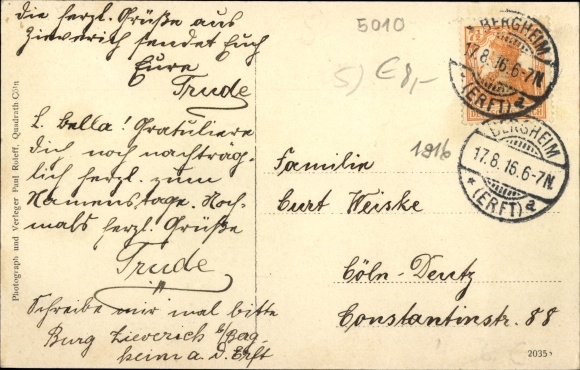 die herzl. Grüße aus
Zieverich sendet Euch
Eure
Trude
L. Bella! Gratuliere
dich noch nachträg-
lich herzl. zum
Namenstage. Noch-
mals herzl. Grüße
Trude
Schreibe mir mal bitte
Burg Zieverich b/Berg-
heim a. d. Erft
Photograph und Verleger Paul Roleff, Quadrath Cöln
5010
5) € 8,-
1916
BERGHEIM
17.8.16.6-7N.
* (ERFT) a
BERGHEIM
17.8.16.6-7N.
* (ERFT) a
7½
Familie
Curt Weiske
Cöln-Deutz
Constantinstr. 88
2035